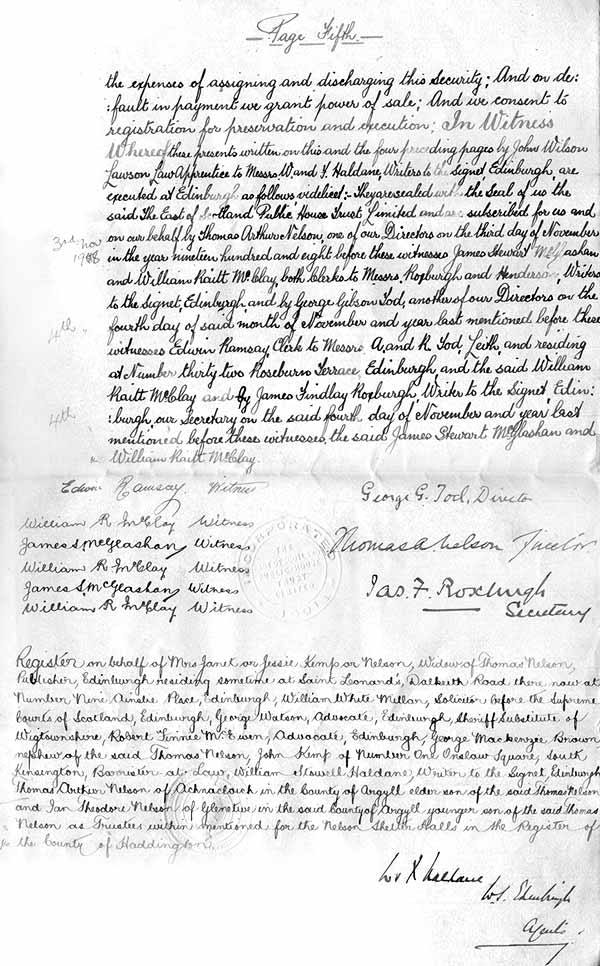 Page Fifth.
the expenses of assigning and discharging this security; And on de:
:fault in payment we grant power of sale; And we consent to
registration for preservation and execution; In Witness
Whereof these presents written on this and the four preceding pages by John Wilson
Lawson Law Apprentice to Messrs. W. and F. Haldane Writers to the Signet, Edinburgh, are
executed at Edinburgh as follows videlicet:- They are sealed with the Seal of us the
said The East of Scotland Public House Trust Limited and are subscribed for us and
on our behalf by Thomas Arthur Nelson, one of our Directors on the third day of November
3rd Nov
1908
in the year nineteen hundred and eight before these witnesses James Stewart McGlashan
and William Raitt McClay, both Clerks to Messrs. Roxburgh and Henderson, Writers
to the Signet, Edinburgh, and by George Gibson Tod, another of our Directors on the
4th "
fourth day of said month of November and year last mentioned before these
witnesses Edwin Ramsay, Clerk to Messrs A. and R. Tod, Leith, and residing
at Number thirty two Roseburn Terrace, Edinburgh and the said William
Raitt McClay and by James Findlay Roxburgh, Writer to the Signet, Edin:
4th "
:burgh, our Secretary on the said fourth day of November and year last
mentioned before these witnesses, the said James Stewart McGlashan and
William Raitt McClay.
Edwin Ramsay. Witness
George G. Tod, Director
William R McClay Witness
James S. McGlashan Witness
Thomas A Nelson Director
William R McClay Witness
James S. McGlashan Witness
Jas. F. Roxburgh
William R McClay Witness
Secretary
INCORPORATED
Register on behalf of Mrs Janet or Jessie Kemp or Nelson, Widow of Thomas Nelson,
Publisher, Edinburgh residing sometime at Saint Leonard's, Dalkeith Road there now at
Number Nine Ainslie Place, Edinburgh, William White Millar, Solicitor before the Supreme
Courts of Scotland, Edinburgh, George Watson, Advocate, Edinburgh, Sheriff Substitute of
Wigtownshire, Robert Finnie McEwen, Advocate, Edinburgh, George Mackenzie Brown
nephew of the said Thomas Nelson, John Kemp of Number One Onslow Square, South
Kensington, Barrister at Law, William Stowell Haldane, Writer to the Signet, Edinburgh
Thomas Arthur Nelson of Achnacloich in the County of Argyll elder son of the said Thomas Nelson
and Ian Theodore Nelson of Glenetive in the said County of Argyll younger son of the said Thomas
Nelson as Trustees within mentioned for the Nelson Shelter Halls in the Register of
the County of Haddington.
W & F Haldane
W.S. Edinburgh
Agents.